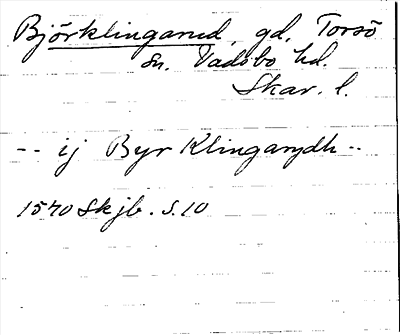 Björklingarud, gd, Torsö
sn. Vadsbo hd.
Skar. l.
-- ij Byr Klingarydh --
1540 Skjb. S.10